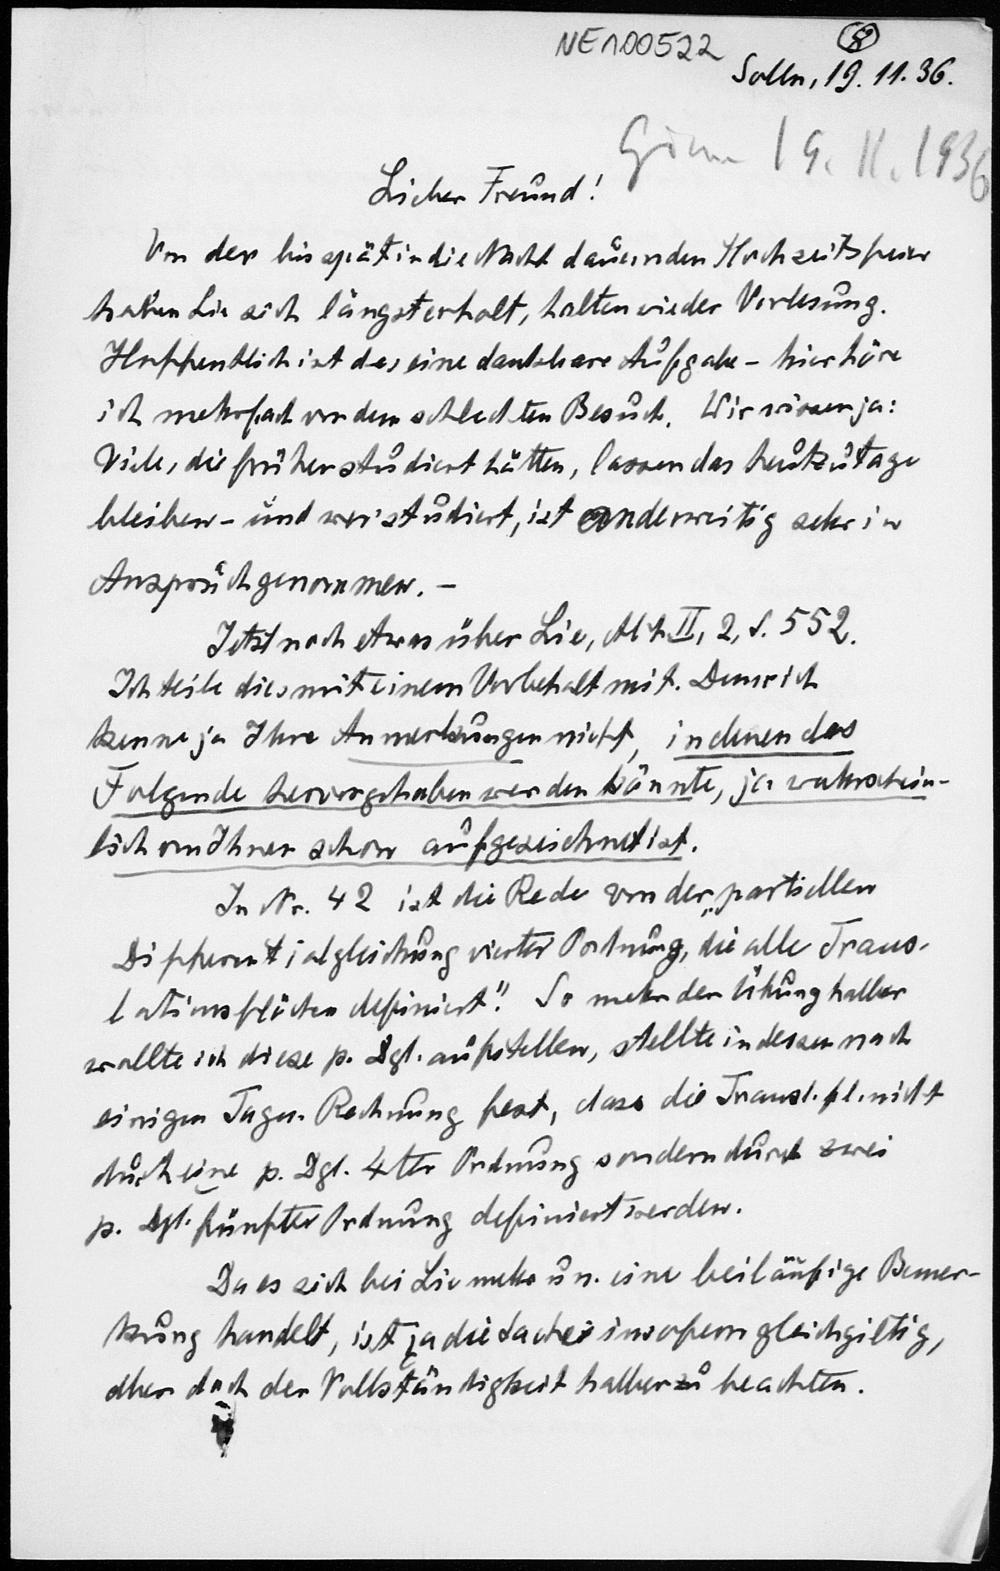 NE100522
Solln, 19. 11. 36.
19. 11. 1936
Lieber Freund!
Von der bis spät in die Nacht dauernden Hochzeitsfeier
haben Sie sich längst erholt, halten wieder Vorlesung.
Hoffentlich ist das eine dankbare Aufgabe – hier höre
ich mehrfach von dem schlechten Besuch. Wir wissen ja:
Viele, die früher studiert hätten, lassen das heutzutage
bleiben – und wer studiert, ist anderweitig sehr in
Anspruch genommen. –
Jetzt noch etwas über Lie, Abh. II, 2, S. 552.
Ich teile dies mit einem Vorbehalt mit. Denn ich
kenne ja Ihre Anmerkungen nicht, in denen das
Folgende hervorgehoben werden könnte, ja wahrschein-
lich von Ihnen schon aufgezeichnet ist.
In Nr. 42 ist die Rede von der „partiellen
Differentialgleichung vierter Ordnung, die alle Trans-
lationsflächen definiert". So mehr der Übung halber
wollte ich diese p. Dgl. aufstellen, stellte indessen nach
einigen Tagen Rechnung fest, dass die Transl.fl. nicht
durch eine p. Dgl. 4ter Ordnung sondern durch zwei
p. Dgl. fünfter Ordnung definiert werden.
Da es sich bei Lie mehr um eine beiläufige Bemer-
kung handelt, ist ja die Sache insofern gleichgiltig,
aber doch der Vollständigkeit halber zu beachten.